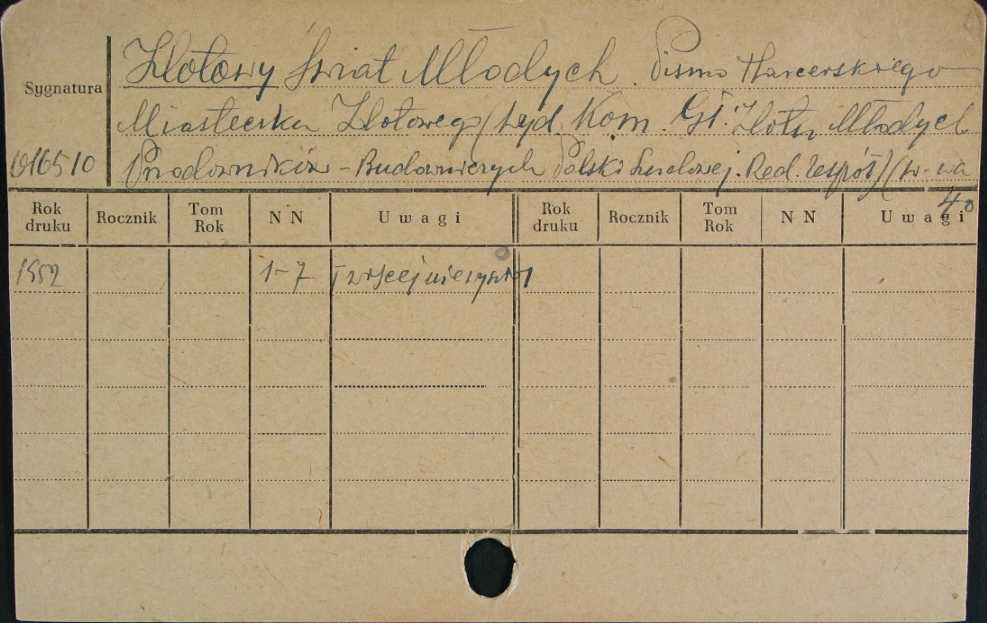 Zlotowy Świat Młodych. Pismo Harcerskiego
Sygnatura
Miasteczka Zlotowego (Wyd. Kom. Gł. Zlotu Młodych
016510
Przodowników - Budowniczych Polski Ludowej. Red. Zespół) (W-wa
4°
Rok druku Rocznik Tom Rok NN Uwagi Rok druku Rocznik Tom Rok NN Uwagi
1952 1-7 i więcej nie